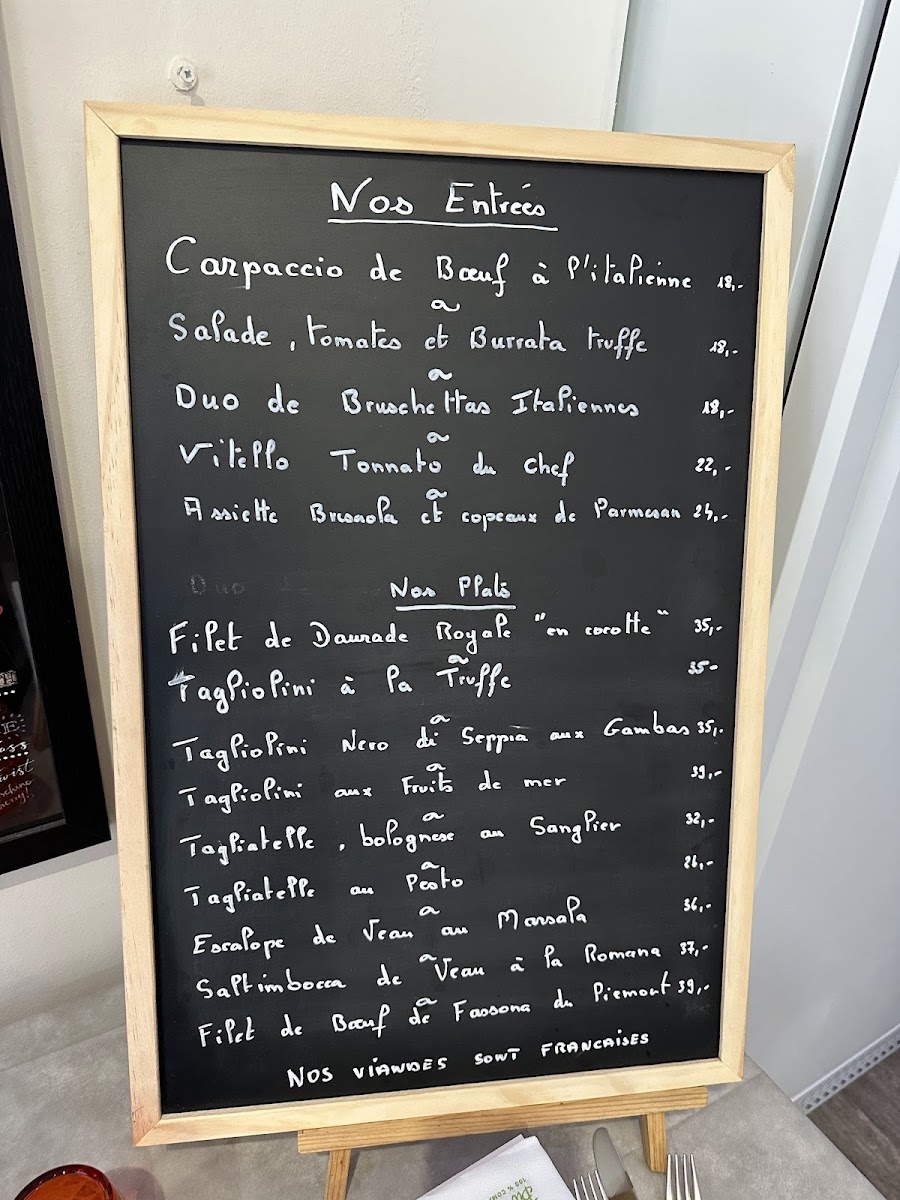 Nos Entrées
Carpaccio de Bœuf à l'italienne 18,-
Salade, tomates et Burrata truffe 18,-
Duo de Bruschettas Italiennes 18,-
Vitello Tonnato du chef 22,-
Assiette Bresaola et copeaux de Parmesan 24,-
Duo
Nos Plats
Filet de Daurade Royale "en cocotte" 35,-
Tagliolini à la Truffe 35-
Tagliolini Nero di Seppia aux Gambas 35,-
Tagliolini aux Fruits de mer 39,-
Tagliatelle, bolognese au Sanglier 32,-
Tagliatelle au Pesto 26,-
Escalope de Veau au Marsala 36,-
Saltimbocca de Veau à la Romana 37,-
Filet de Bœuf de Fassona du Piemont 39,-
NOS VIANDES SONT FRANCAISES
100 % COM